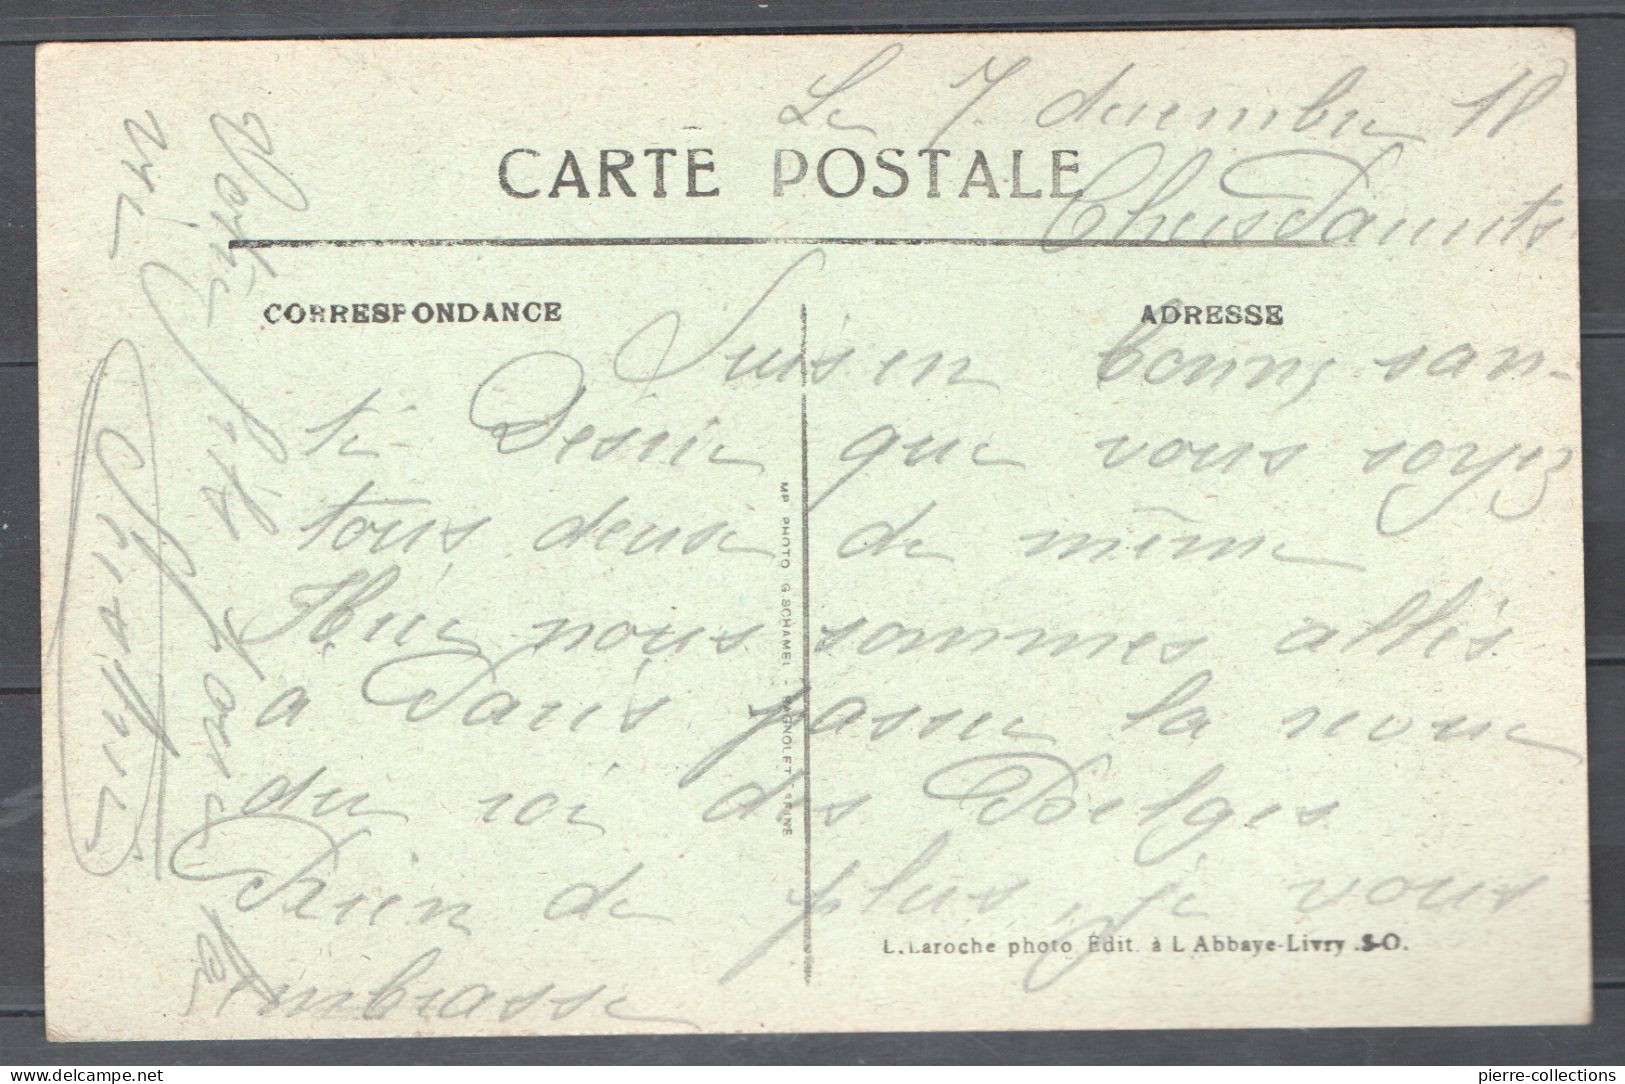 Le 7 decembre 18
CARTE POSTALE
Chers Parents
CORRESPONDANCE
ADRESSE
Suis en bonne san-
té Désire que vous soyez
tous deux de même
Hier nous sommes allés
à Paris passer la revue
du roi des Belges
Rien de plus, je vous
embrasse
Votre fils pour la
vie
MP PHOTO G SCHAMEL - BAGNOLET SEINE
L. Laroche photo Edit. à L Abbaye-Livry S-O.
pierre-collections